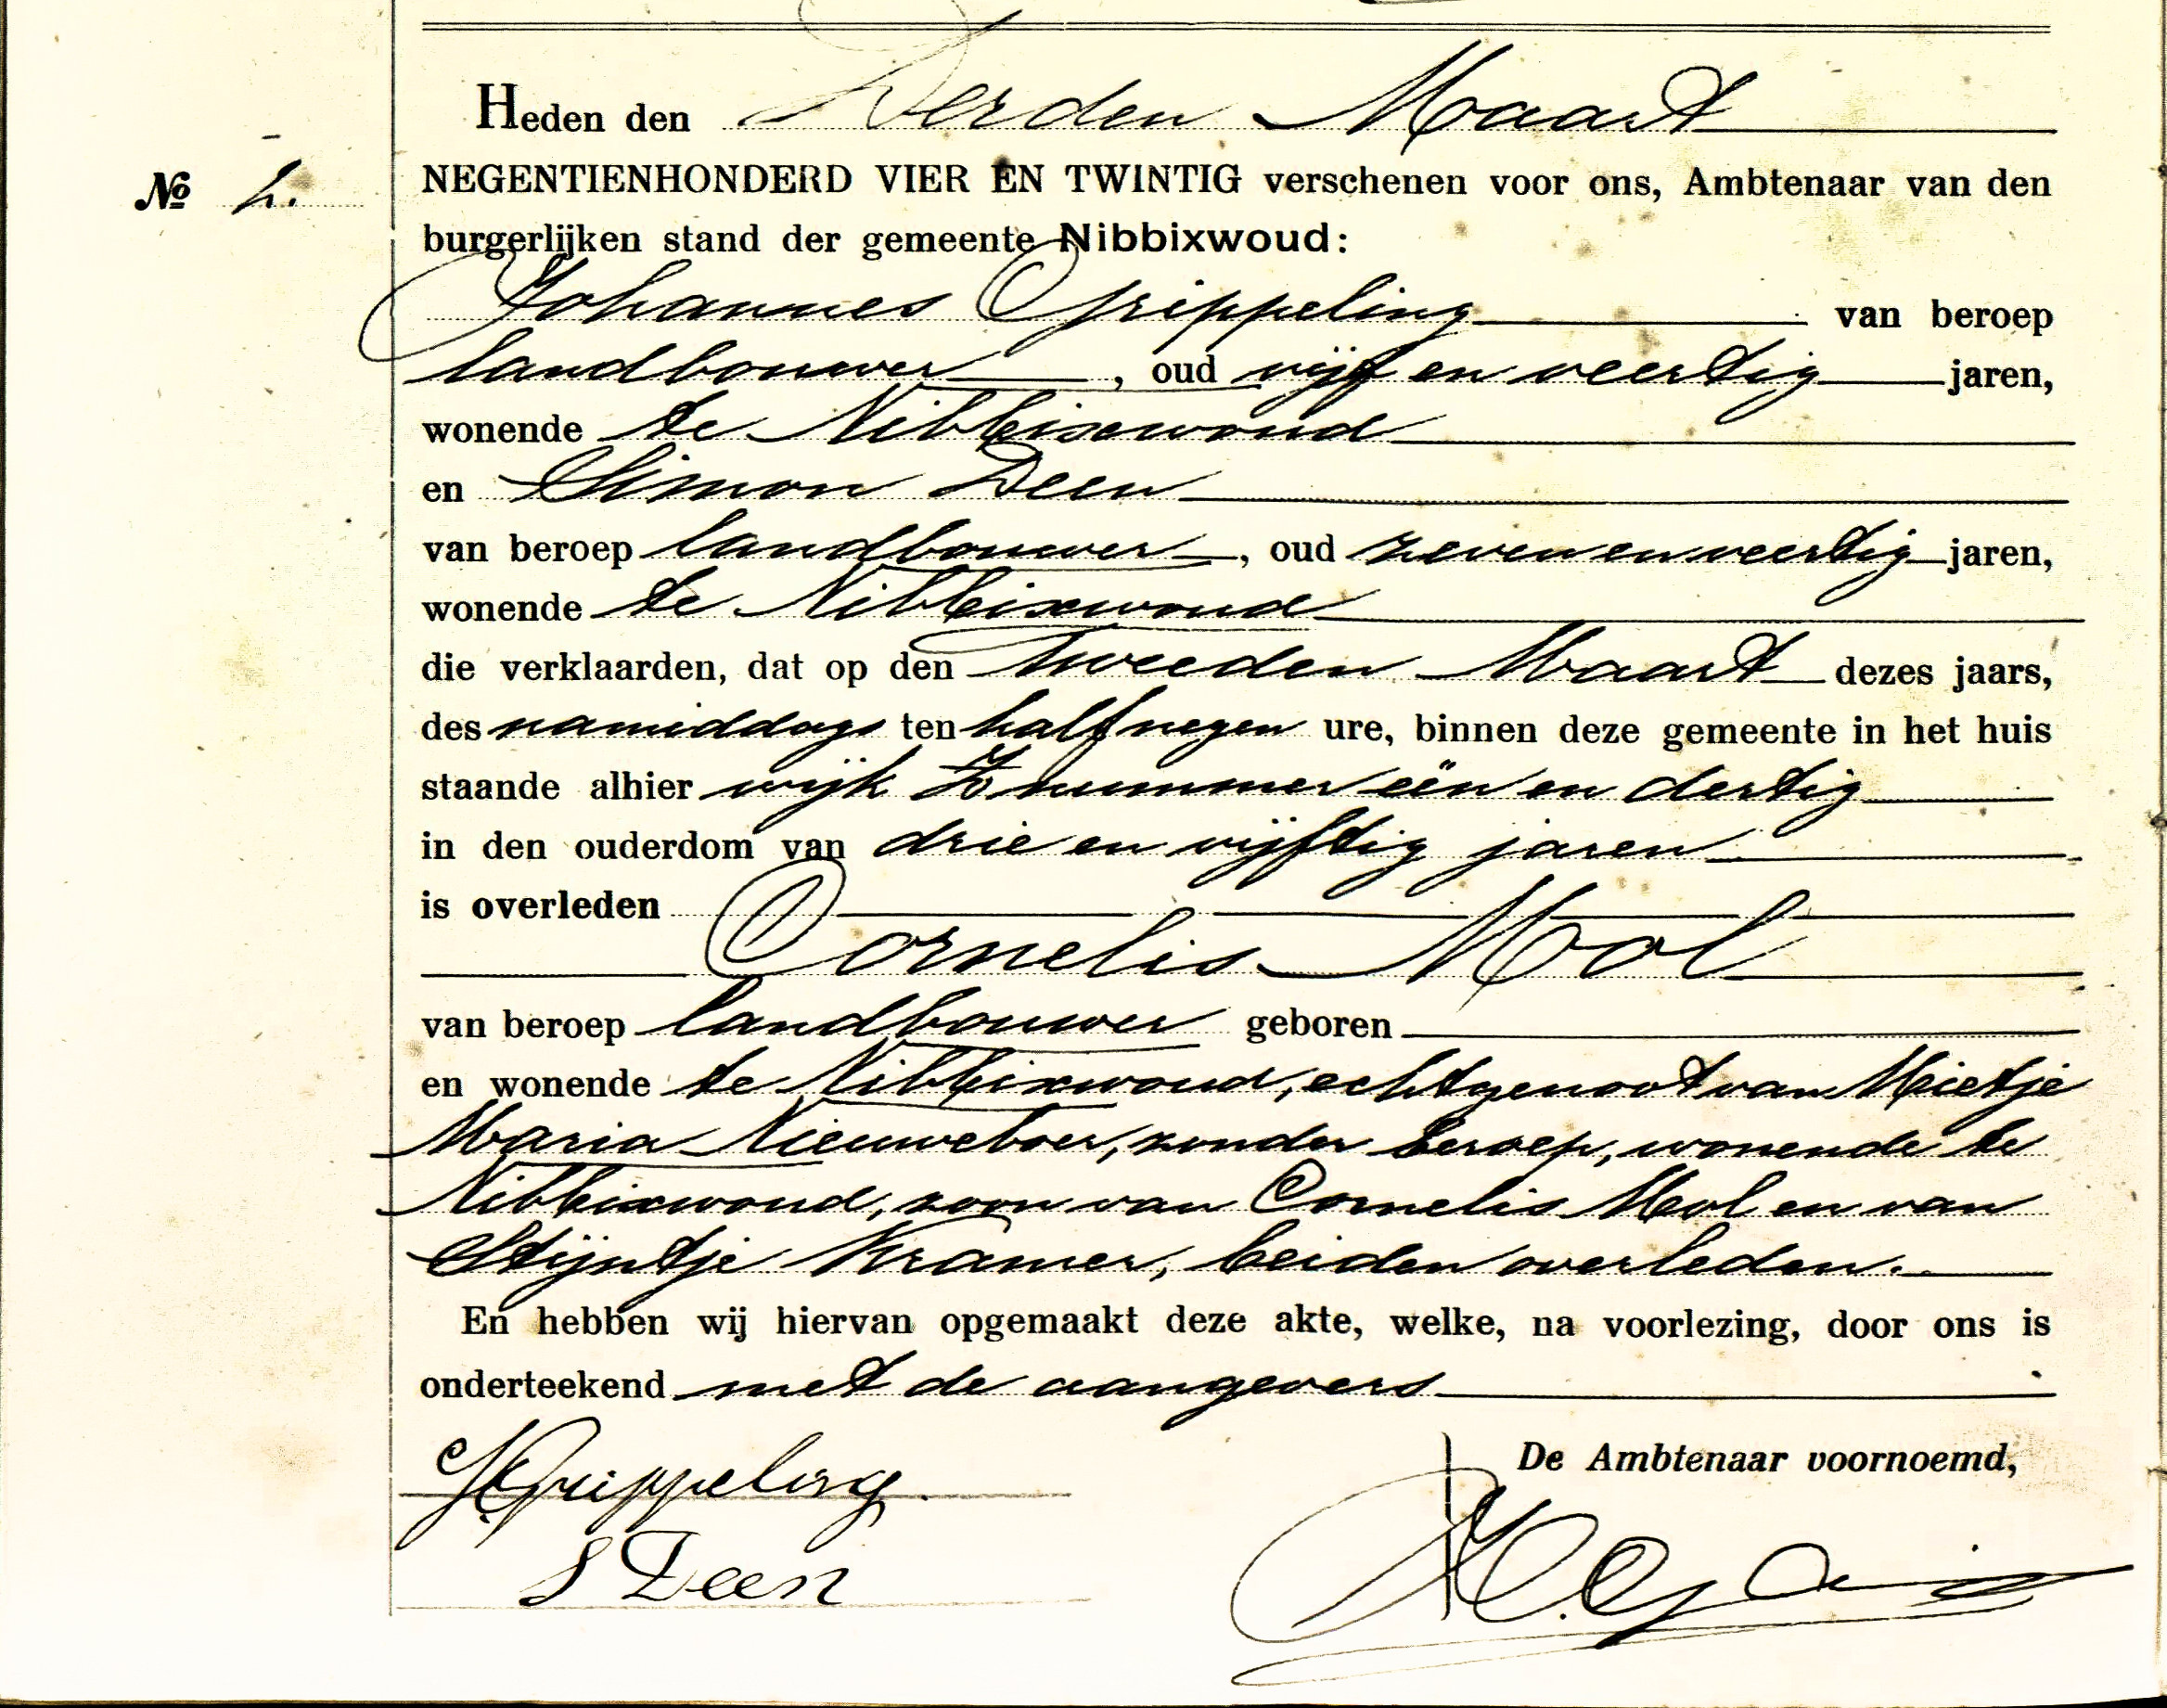 Heden den Derden Maart
NEGENTIENHONDERD VIER EN TWINTIG verschenen voor ons, Ambtenaar van den
№ 2.
burgerlijken stand der gemeente Nibbixwoud:
Johannes Grippeling van beroep
landbouwer, oud vijf en veertig jaren,
wonende te Nibbixwoud
en Simon Deen
van beroep landbouwer, oud zeven en veertig jaren,
wonende te Nibbixwoud
die verklaarden, dat op den Tweeden Maart dezes jaars,
des namiddags ten half negen ure, binnen deze gemeente in het huis
staande alhier wijk nummer één en dertig
in den ouderdom van drie en vijftig jaren
is overleden
Cornelis Mol
van beroep landbouwer geboren
en wonende te Nibbixwoud, echtgenoot van Mietje
Maria Nieuweboer, zonder beroep, wonende te
Nibbixwoud, zoon van Cornelis Mol en van
Stijntje Kramer, beiden overleden.
En hebben wij hiervan opgemaakt deze akte, welke, na voorlezing, door ons is
onderteekend met de aangevers
De Ambtenaar voornoemd,
J Grippeling.
S Deen